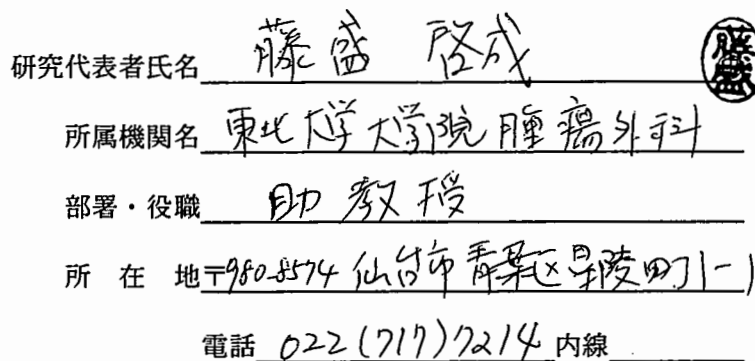 研究代表者氏名 藤盛 啓成 藤盛
所属機関名 東北大学大学院腫瘍外科
部署・役職 助教授
所在地 〒980-8574 仙台市青葉区星陵町1-1
電話 022(717)7214 内線